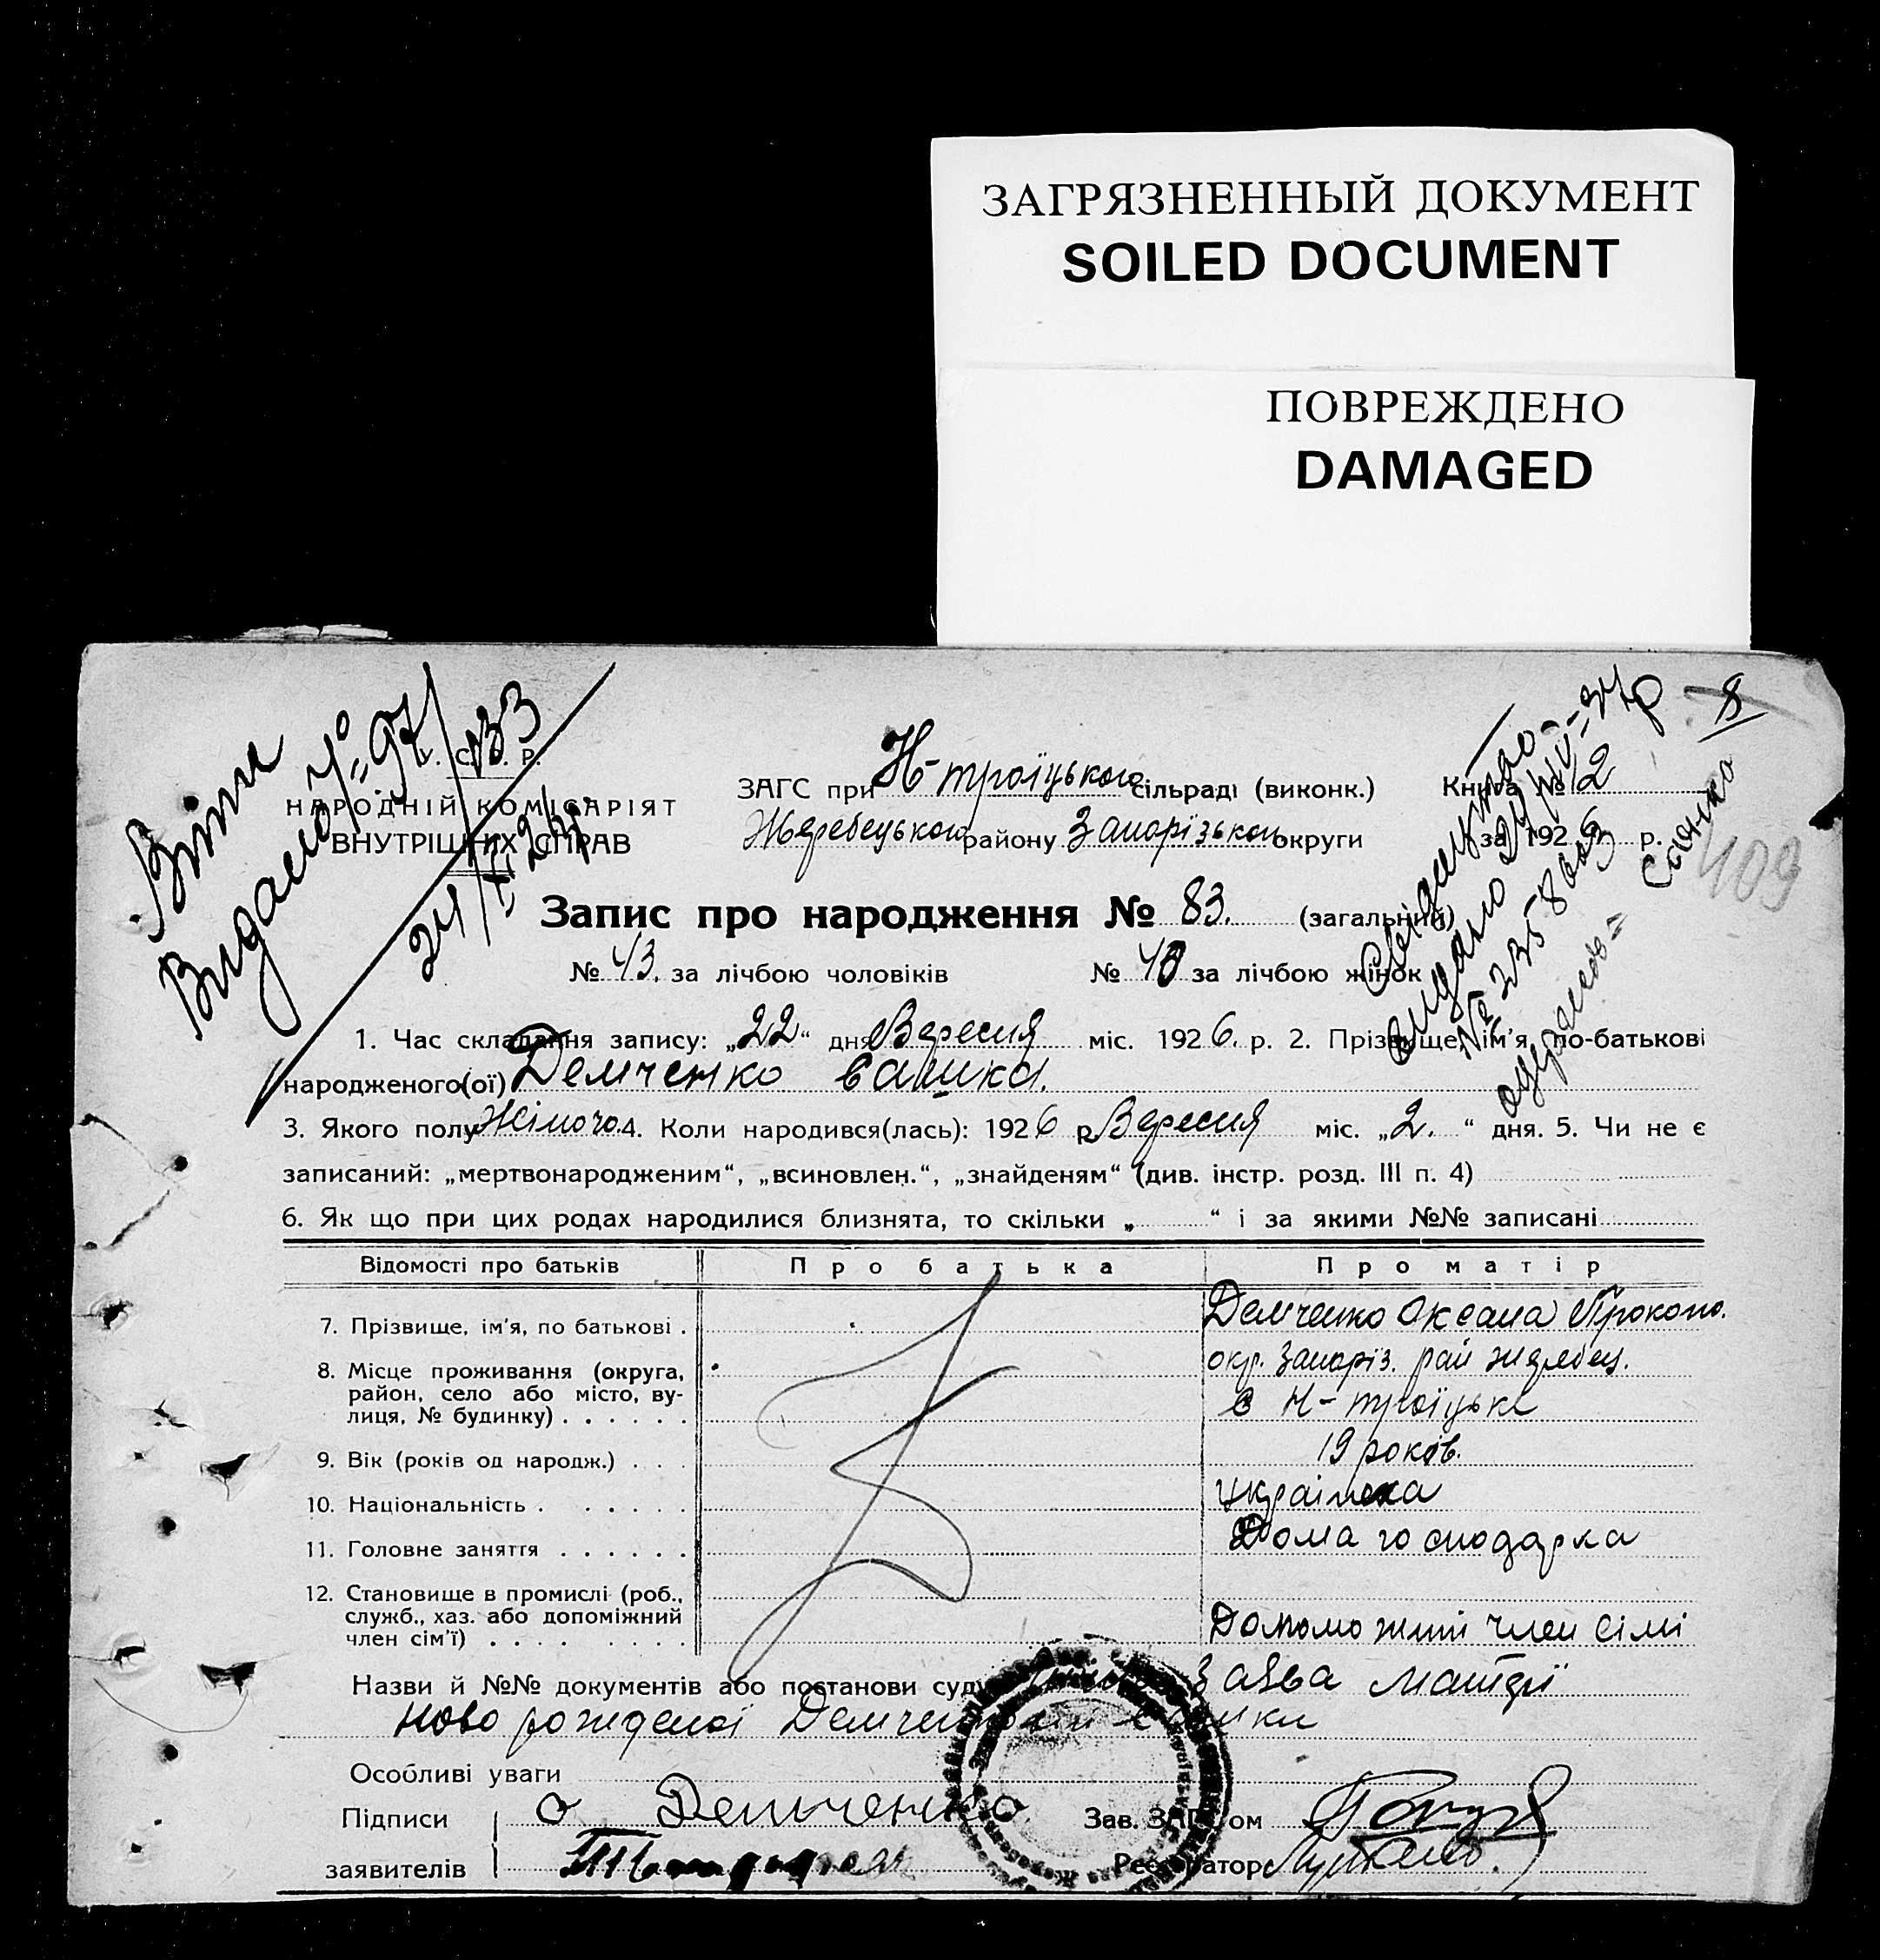 ЗАГРЯЗНЕННЫЙ ДОКУМЕНТ
SOILED DOCUMENT
ПОВРЕЖДЕНО
DAMAGED
Витяг
Видано № 97
133
24/
У. С. Р. Р.
НАРОДНІЙ КОМІСАРІЯТ
ВНУТРІШНИХ СПРАВ
ЗАГС при Н-троїцького сільраді (виконк.) Книга № 2
Жеребецького району Запорізької округи за 1926 р.
8
409
Свідоцтво
видано
№
одержано
Запис про народження № 83. (загальний)
№ 43. за лічбою чоловіків № 40 за лічбою жінок
1. Час складання запису: „22“ дня Вересня міс. 1926. р. 2. Прізвище, ім'я, по-батькові
народженого(ої) Демченко Сашка.
3. Якого полу Жіночо. 4. Коли народився(лась): 1926 р. Вересня міс. „2.“ дня. 5. Чи не є
записаний: „мертвонародженим“, „всиновлен.“, „знайденям“ (див. інстр. розд. III п. 4)
6. Як що при цих родах народилися близнята, то скільки „ “ і за якими №№ записані
Відомості про батьків Про батька Про матір
7. Прізвище, ім'я, по батькові . Демченко Оксана Прокопо.
8. Місце проживання (округа, окр. Запоріз. рай жеребец.
район, село або місто, ву- с Н-троїцьке
лиця, № будинку) . . . . . .
9. Вік (років од народж.) . . . 19 років.
10. Національність . . . . . . українка
11. Головне заняття . . . . . . Дома господарка
12. Становище в промислі (роб.,
служб., хаз. або допоміжний
член сім'ї) . . . . . . . . Допоможний член сімі
Назви й №№ документів або постанови суду Заява матері
ново рожденої Демченко Сашки
Особливі уваги
Підписи О Демченко Зав. ЗАГСом
заявителів Реєстратор